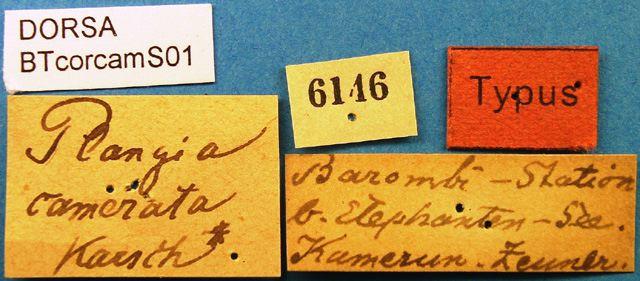 DORSA
BTcorcamS01
6146
Typus
Plangia
camerata
Karsch*
Barombi - Station
b. Elephanten - See.
Kamerun. Zeuner.